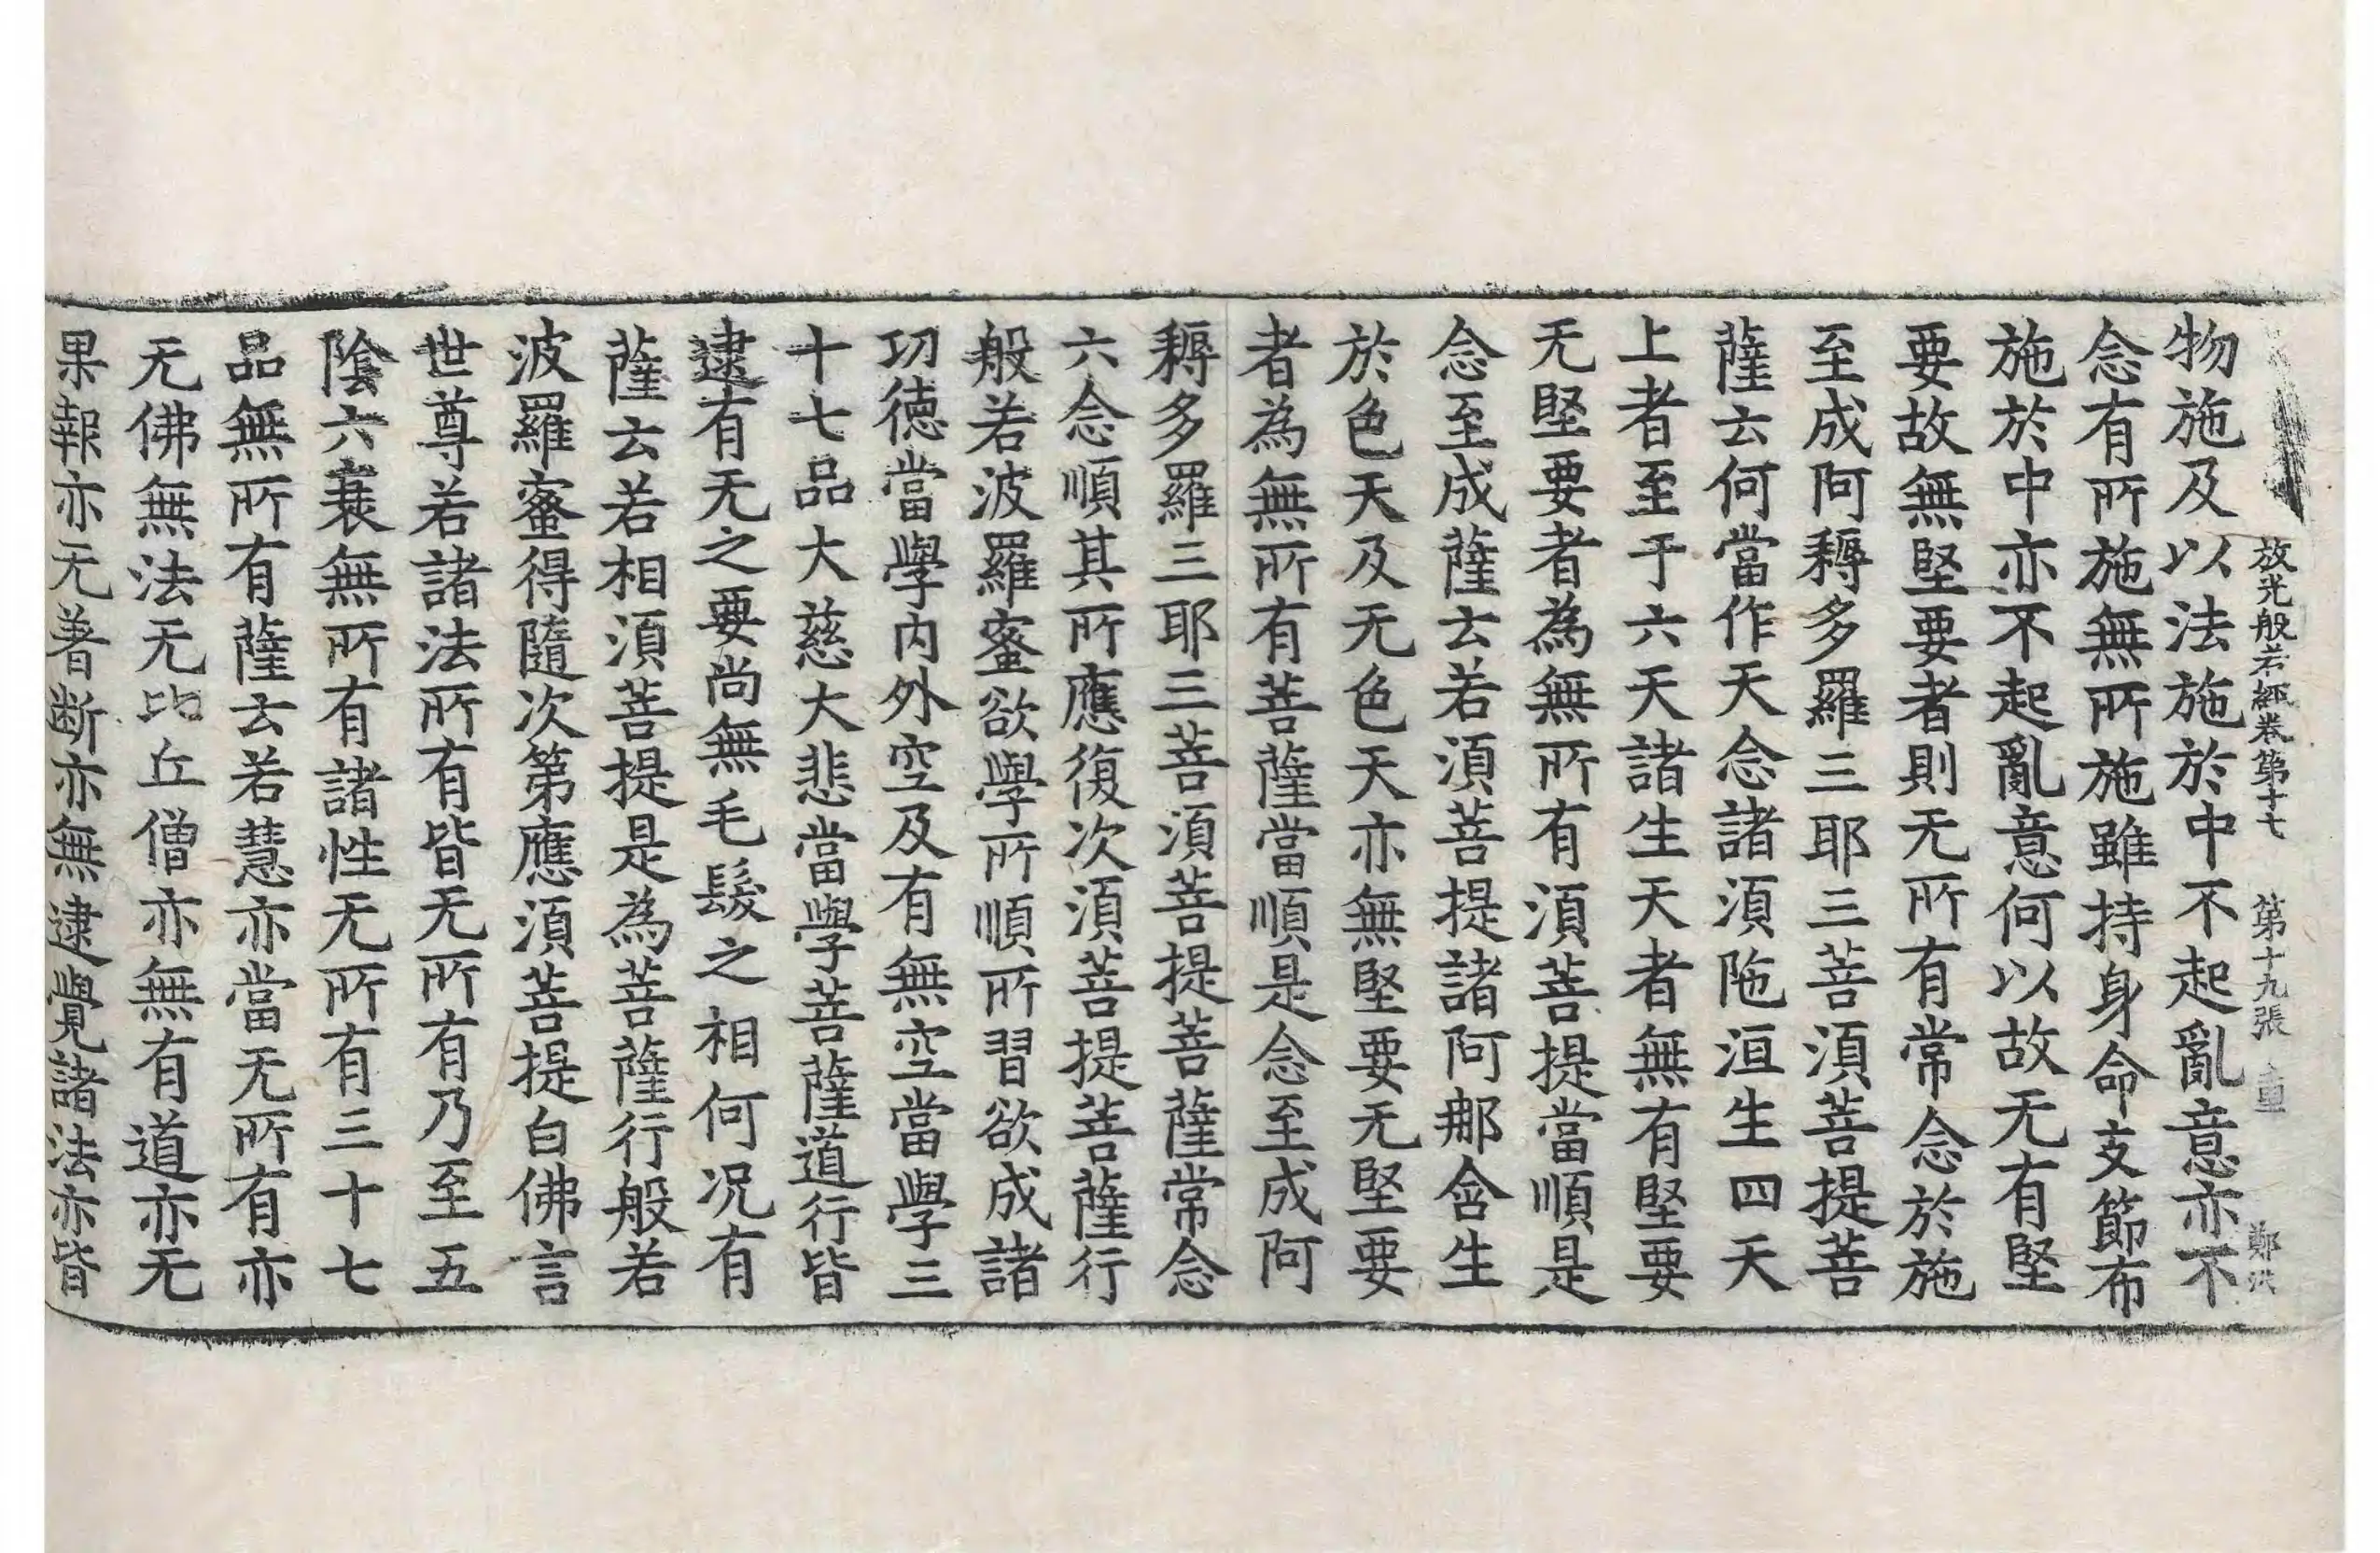 放光般若經卷第十七 第十九張
物施及以法施於中不起亂意亦不
念有所施無所施雖持身命支節布
施於中亦不起亂意何以故无有堅
要故無堅要者則无所有常念於施
至成阿耨多羅三耶三菩須菩提菩
薩云何當作天念諸須陁洹生四天
上者至于六天諸生天者無有堅要
无堅要者為無所有須菩提當順是
念至成薩云若須菩提諸阿那含生
於色天及无色天亦無堅要无堅要
者為無所有菩薩當順是念至成阿
耨多羅三耶三菩須菩提菩薩常念
六念順其所應復次須菩提菩薩行
般若波羅蜜欲學所順所習欲成諸
功德當學內外空及有無空當學三
十七品大慈大悲當學菩薩道行皆
逮有无之要尚無毛髮之相何况有
薩云若相須菩提是為菩薩行般若
波羅蜜得隨次第應須菩提白佛言
世尊若諸法所有皆无所有乃至五
陰六衰無所有諸性无所有三十七
品無所有薩云若慧亦當无所有亦
无佛無法无比丘僧亦無有道亦无
果報亦无著斷亦無逮覺諸法亦皆